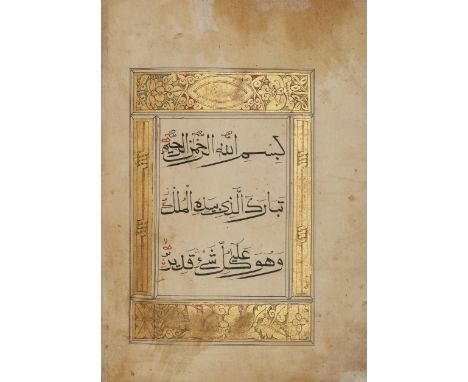 بسم الله الرحمن الرحيم
تبارك الذي بيده الملك
وهو على كل شئ قدير